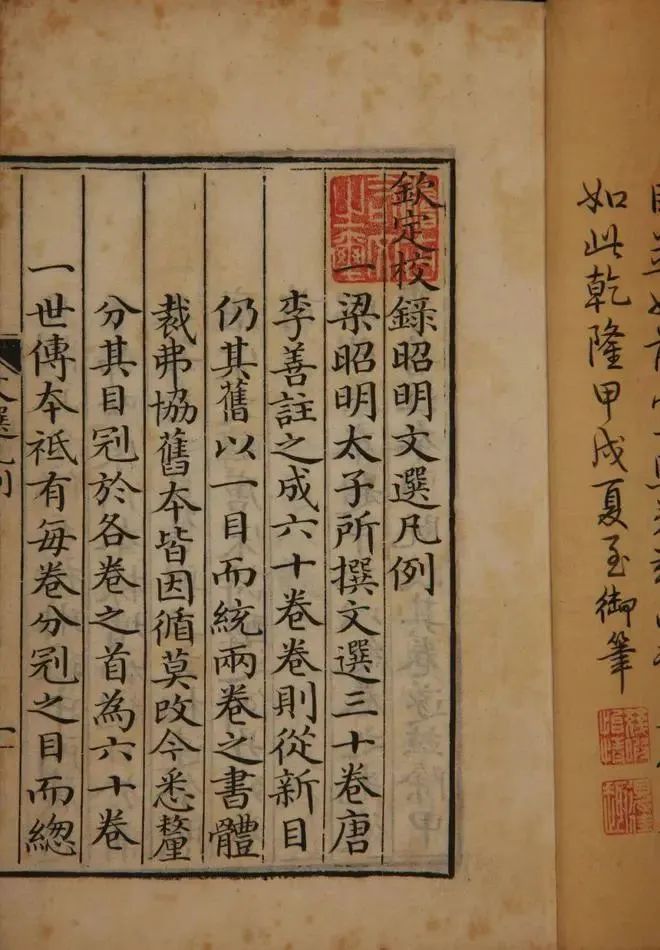 如此乾隆甲戌夏至御筆
欽定校錄昭明文選凡例
一梁昭明太子所撰文選三十卷唐
李善註之成六十卷卷則從新目
仍其舊以一目而統兩卷之書體
裁弗協舊本皆因循莫改今悉釐
分其目冠於各卷之首為六十卷
一世傳本祗有每卷分冠之目而緫
文選凡例